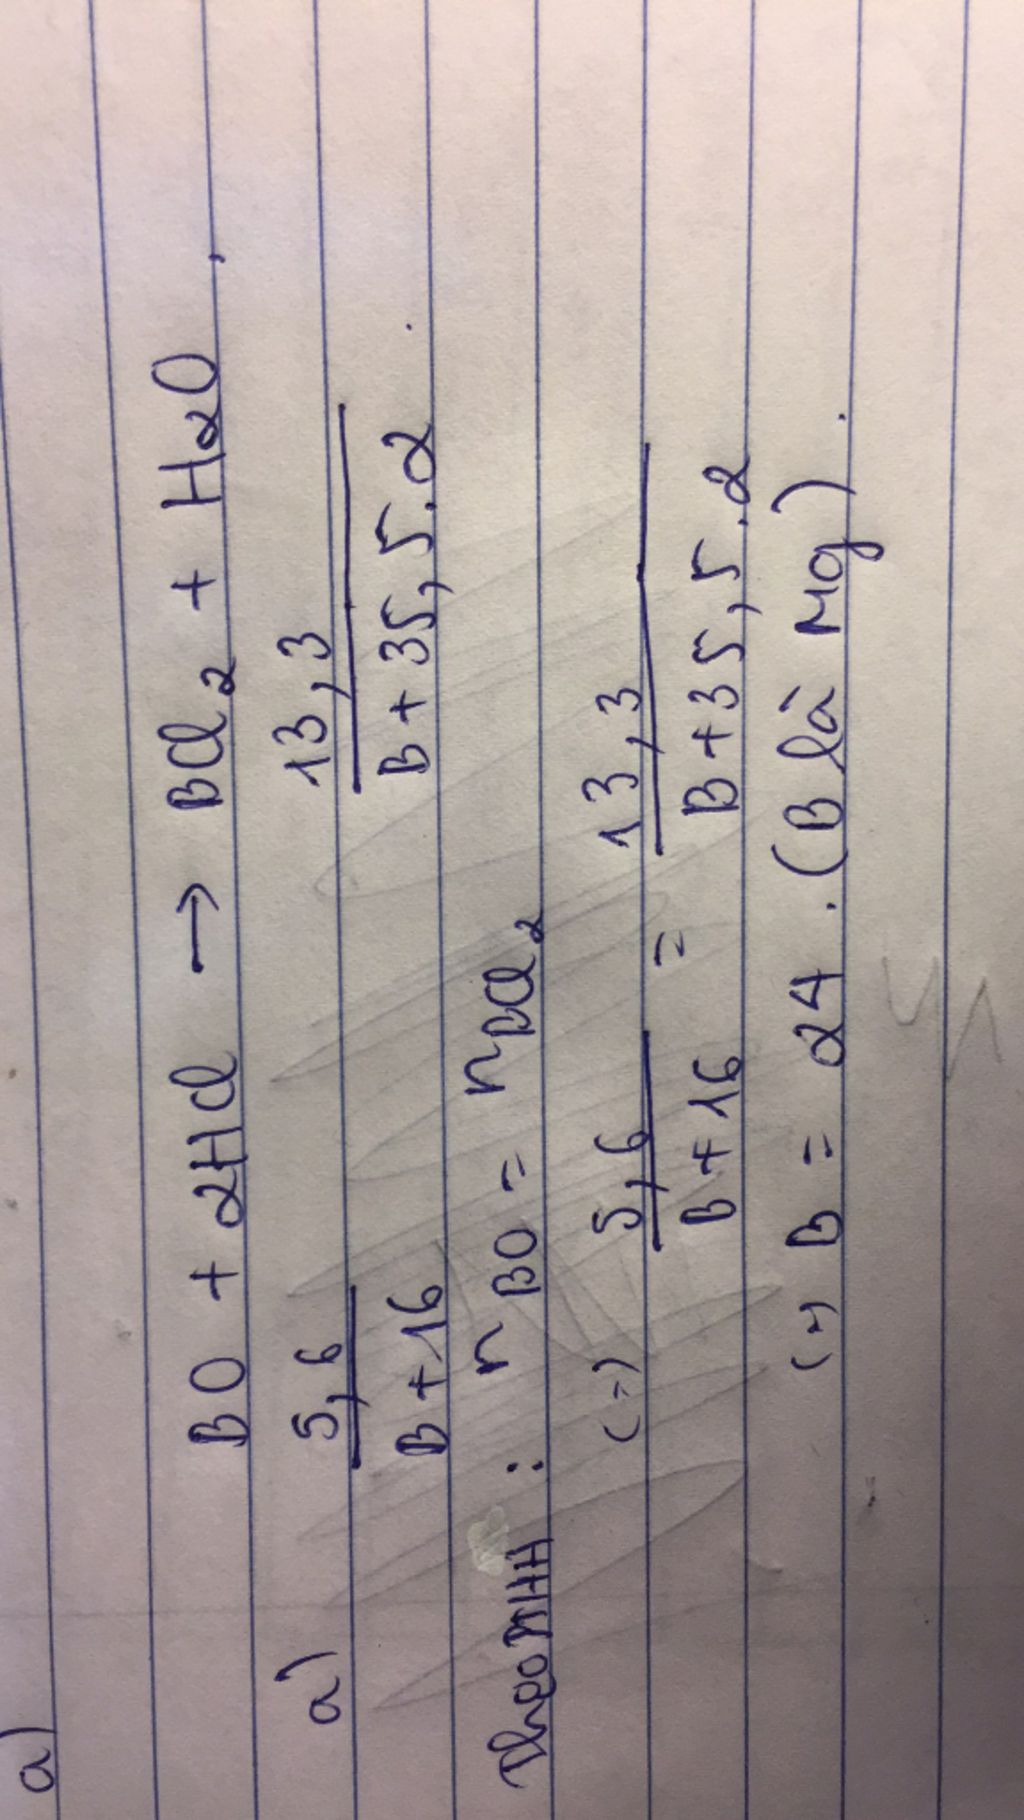 a)
BO + 2HCl → BCl₂ + H₂O,
a) 5,6/(B+16) 13,3/(B+35,5.2)
Theo PTHH : nBO = nBCl₂
(=) 5,6/(B+16) = 13,3/(B+35,5.2)
(=) B = 24. (B là Mg).